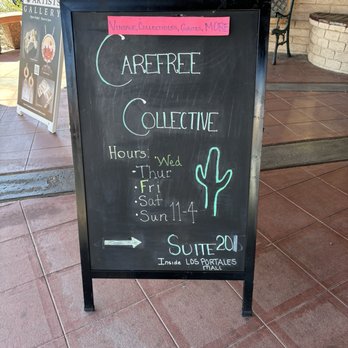 ARTISTS
GALLERY
VINTAGE, COLLECTIBLES, MORE
CAREFREE
COLLECTIVE
Hours: Wed
• Thur
• Fri
• Sat
• Sun 11-4
SUITE
Inside LOS PORTALES
MALL